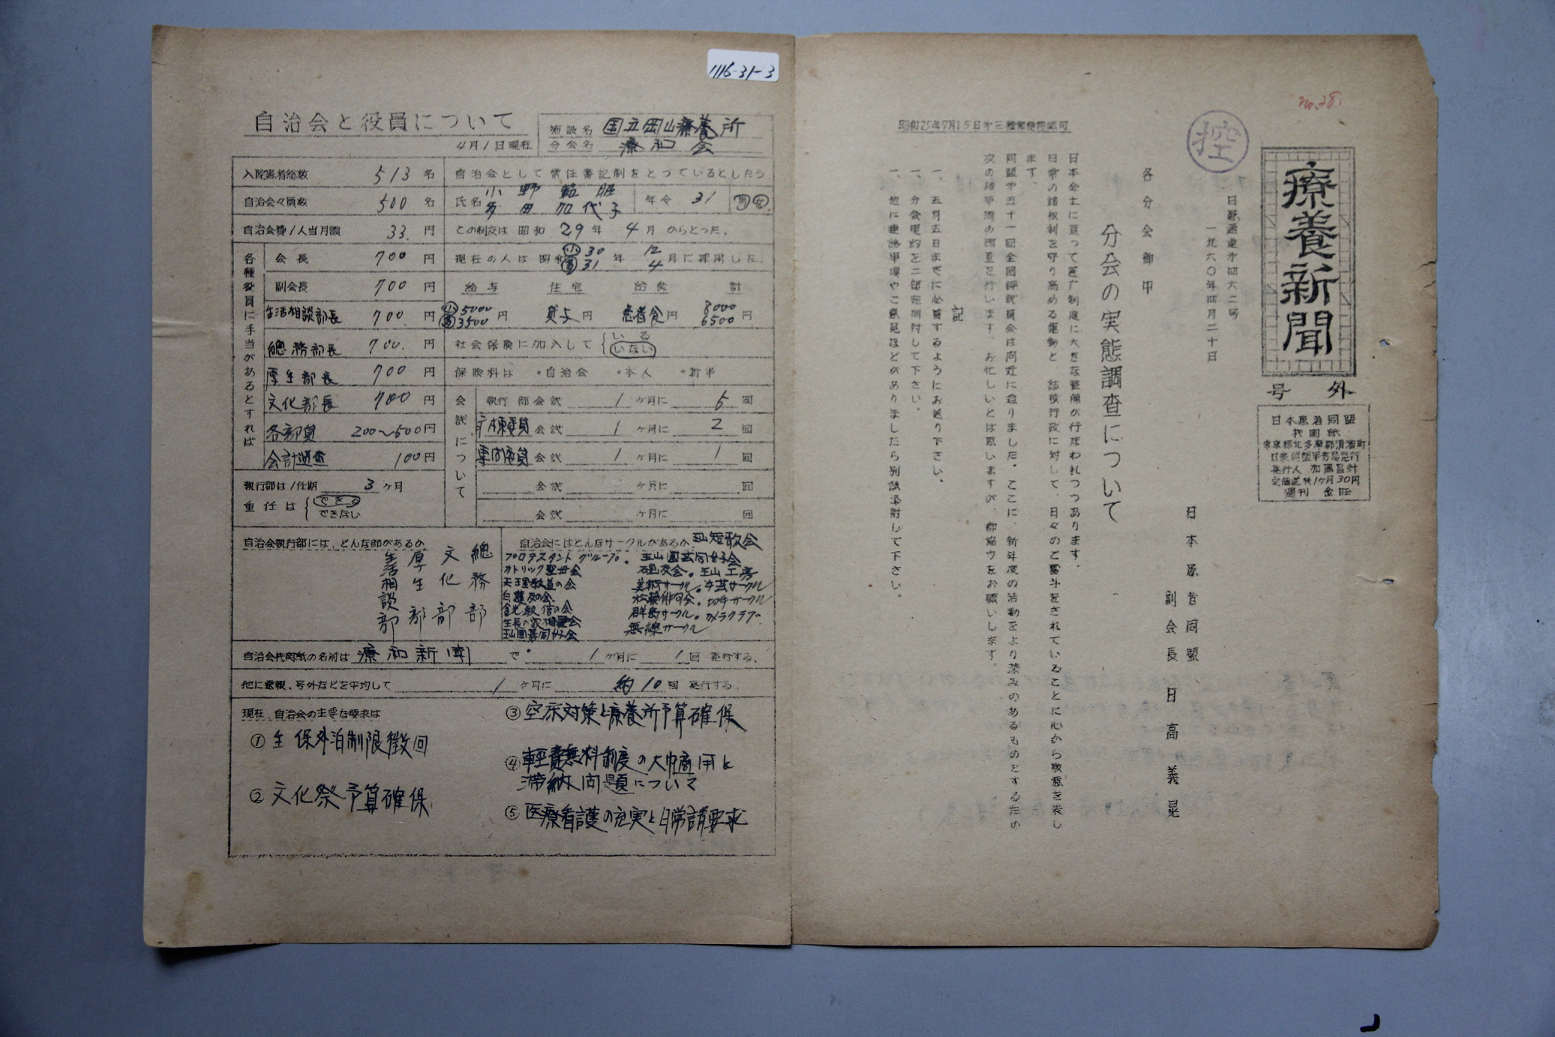 1116-31-3
No.38
控
昭和25年9月15日第三種郵便物認可
療養新聞
号外
日本患者同盟
機関紙
東京都北多摩郡清瀬町
日患同盟事務局発行
発行人 加藤昌計
定価送共1ヶ月30円
週刊
日患発第四六二号
一九六〇年四月二十日
各分会御中
日本患者同盟
副会長 日高義晃
分会の実態調査について
日本全土に亘って医療制度に大きな攻撃が行なわれつつあります。
日常の諸权利を守り高める運動と、諸検行政に対して、日々のご奮斗をされていることに心から敬意を表し
ます。
同盟第五十一回全国評議員会は間近に迫りました。ここに、新年度の活動をより深みのあるものとするため
次の諸事項の調査を行います。お忙しいとは思いますが、御協力をお願いします。
記
一、五月五日までに必着するようにお送り下さい。
一、分会規約を二部宛同封して下さい。
一、他に連絡事項やご意見などがありましたら別紙添附して下さい。
自治会と役員について
4月1日現在
施設名 国立岡山療養所
分会名 療和会
入院患者総数 513名
自治会々員数 500名
自治会費1人当月額 33.円
各種役員に手当があるとすれば
会長 700円
副会長 700円
生活相談部長 700.円
総務部長 700.円
厚生部長 700円
文化部長 700円
各部員 200〜500円
会計監査 100円
執行部は1任期 3ヶ月
重任は できる
できない
自治会として常任書記制をとっているとしたら
氏名 小野
多田加代子 年令 31 男女
この制度は昭和29年4月からとった。
現在の人は昭和 30年 12
31 4月に採用した
給与 住宅 給食 計
5000
3500円 貸与円 患者食円 8000
6500円
社会保険に加入して いる
いない
保険料は ・自治会 ・本人 ・折半
会議について
執行部会議 1ヶ月に 5回
会議 1ヶ月に 2回
会議 1ヶ月に 1回
会議 ヶ月に 回
会議 ヶ月に 回
自治会執行部には、どんな部があるか
総務部
文化部
厚生部
生活相談部
自治会にはどんなサークルがあるか
玉山短歌会
プロテスタントグループ。
カトリック聖母会
天理教道の会
白蓮友の会
金光教信の会
玉山園芸同好会
玉山工房
美術サークル。
カメラクラブ。
無線サークル
自治会機関紙の名前は 療和新聞 で 1ヶ月に 1回 発行する。
他に速報、号外などを平均して 1ヶ月に 約10回 発行する。
現在、自治会の主要な要求は
① 生保外泊制限撤回
② 文化祭予算確保
③ 空床対策と療養所予算確保
④ 軽費無料制度の大巾適用と
滞納問題について
⑤ 医療看護の充実と日常諸要求